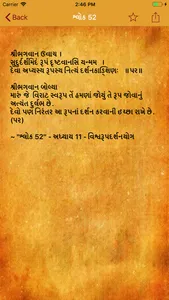 2:46 PM
શ્લોક 52
શ્રીભગવાન ઉવાચ ।
સુદુર્દર્શમિદં રૂપં દૃષ્ટવાનસિ યન્મમ ।
દેવા અપ્યસ્ય રૂપસ્ય નિત્યં દર્શનકાંક્ષિણઃ ॥૫૨॥
શ્રીભગવાન બોલ્યા
મારુ જે વિરાટ સ્વરૂપ તેં હમણાં જોયું તે રૂપ જોવાનું
અત્યંત દુર્લભ છે.
દેવો પણ નિરંતર આ રૂપનાં દર્શન કરવાની ઇચ્છા રાખે છે.
(૫૨)
~ "શ્લોક 52" - અધ્યાય 11 - વિશ્વરૂપદર્શનયોગ